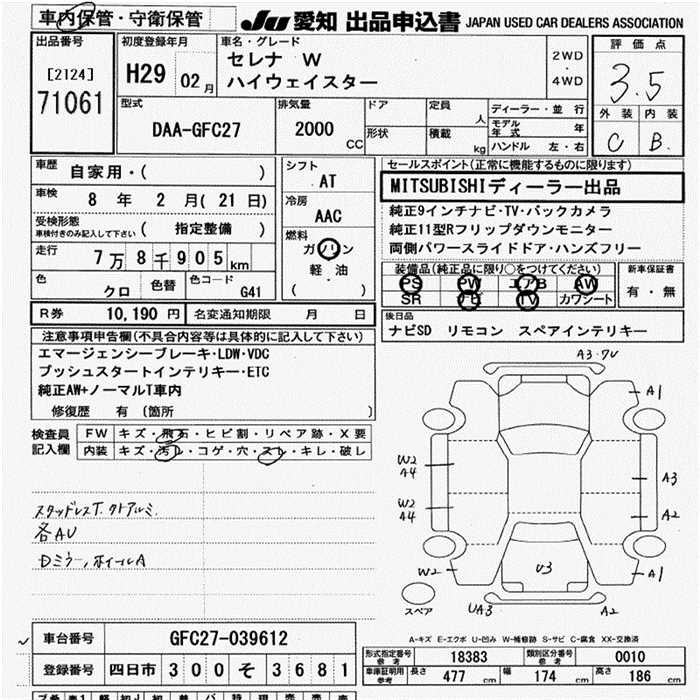 車内保管・守衛保管
JU 愛知 出品申込書 JAPAN USED CAR DEALERS ASSOCIATION
出品番号
[2124]
71061
初度登録年月
H29 02月
車名・グレード
セレナ W
ハイウェイスター
2WD
・
4WD
評価点
3.5
外装 内装
C B.
型式
DAA-GFC27
排気量
2000 CC
ドア
形状
定員 人
積載 kg
ディーラー・並行
モデル年式 年
ハンドル 左・右
車歴
自家用・( )
車検
8 年 2 月( 21 日)
受検形態
車検付きのみ記入して下さい
( 指定整備 )
走行
7万8千905km
色
クロ
色替
色コード
G41
シフト
AT
冷房
AAC
燃料
ガソリン
軽油
( )
セールスポイント(正常に機能するものに限ります)
MITSUBISHIディーラー出品
純正9インチナビ・TV・バックカメラ
純正11型Rフリップダウンモニター
両側パワースライドドア・ハンズフリー
装備品(純正品に限り○をつけてください)
PS PW エアB AW
SR ナビ TV カワシート
新車保証書
有・無
R券 10,190 円 名変通知期限 月 日
後日品
ナビSD リモコン スペアインテリキー
注意事項申告欄(不具合内容等は具体的に記入して下さい)
エマージェンシーブレーキ・LDW・VDC
プッシュスタートインテリキー・ETC
純正AW+ノーマルT車内
修復歴 有 (箇所 )
検査員
記入欄
FW キズ・飛石・ヒビ割・リペア跡・X要
内装 キズ・汚レ・コゲ・穴・スレ・キレ・破レ
スタッドレスT. クトアルミ.
各AU
Dミラー, ホイールA
A3・7U
A1
W2
A4
A3
W2
A4
A2
W2
U3
A1
スペア
UA3
A2
A-キズ E-エクボ U-凹み W-補修跡 S-サビ C-腐食 XX-交換済
車台番号 GFC27-039612
登録番号 四日市 300 そ 3681
形式指定番号
参考
18383
類別区分番号
参考
0010
車庫証明用
参考
長さ 477 cm 幅 174 cm 高さ 186 cm